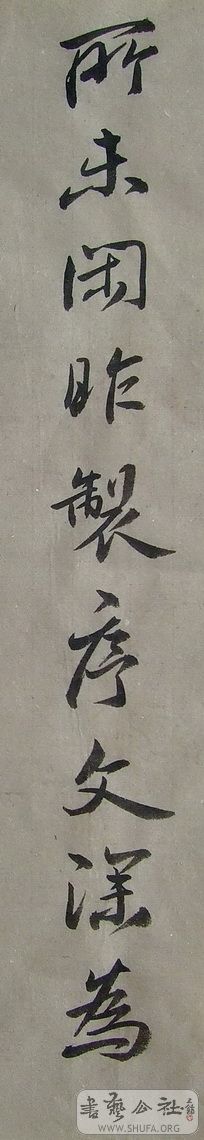 所未闲昨製序文深為
書藝公社
WWW.SHUFA.ORG